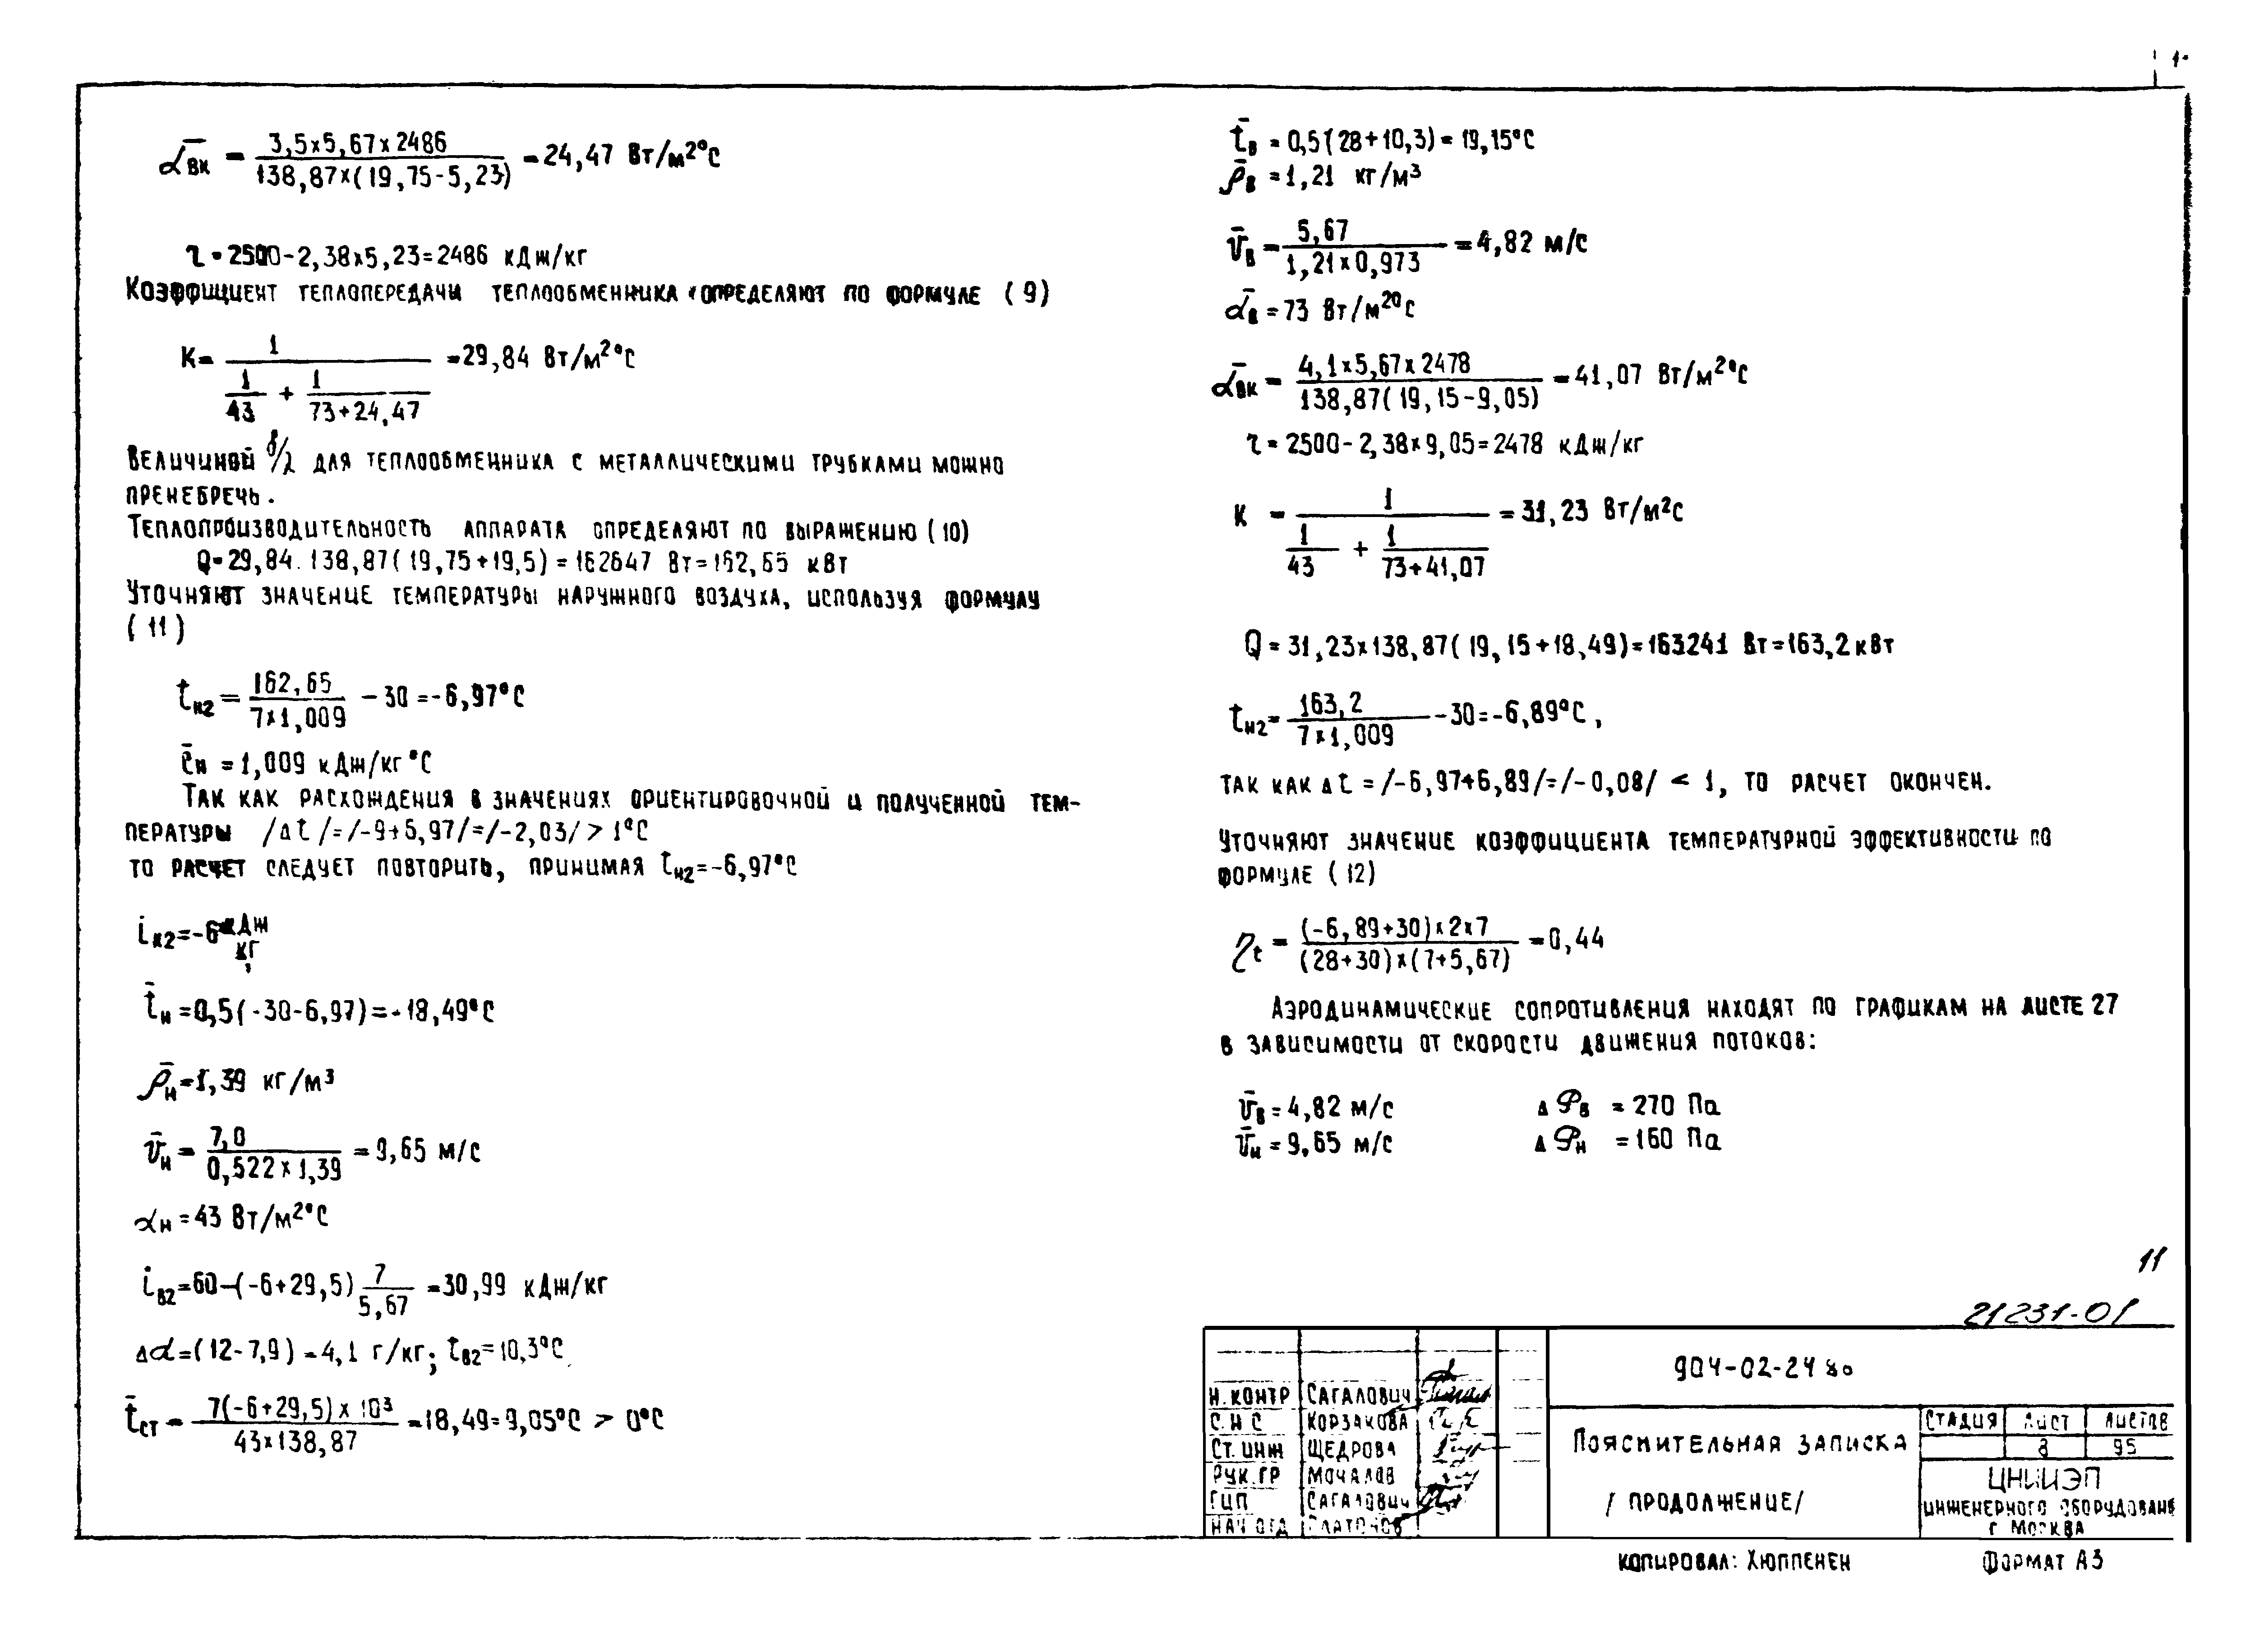 ᾱвк = 3,5×5,67×2486 / 138,87×(19,75-5,23) = 24,47 Вт/м²°С
r = 2500-2,38×5,23=2486 кДж/кг
Коэффициент теплопередачи теплообменника определяют по формуле (9)
К= 1 / (1/43 + 1/(73+24,47)) =29,84 Вт/м²°С
Величиной δ/λ для теплообменника с металлическими трубками можно
пренебречь.
Теплопроизводительность аппарата определяют по выражению (10)
Q=29,84.138,87(19,75+19,5)=162647 Вт=162,65 кВт
Уточняют значение температуры наружного воздуха, используя формулу
(11)
tн2= 162,65 / 7×1,009 -30=-6,97°С
c̄н =1,009 кДж/кг°С
Так как расхождения в значениях ориентировочной и полученной тем-
пературы /Δt/=/-9+6,97/=/-2,03/>1°С
то расчет следует повторить, принимая tн2=-6,97°С
iн2=-6 кДж/кг,
t̄н=0,5(-30-6,97)=-18,49°С
ρ̄н=1,39 кг/м³
v̄н= 7,0 / 0,522×1,39 =9,65 м/с
αн=43 Вт/м²°С
iв2=60-(-6+29,5) 7/5,67 =30,99 кДж/кг
Δd=(12-7,9)=4,1 г/кг; tв2=10,3°С
t̄ст= 7(-6+29,5)×10³ / 43×138,87 -18,49=9,05°С > 0°С
t̄в = 0,5(28+10,3)=19,15°С
ρ̄в =1,21 кг/м³
v̄в= 5,67 / 1,21×0,973 =4,82 м/с
ᾱв=73 Вт/м²°С
ᾱвк= 4,1×5,67×2478 / 138,87(19,15-9,05) =41,07 Вт/м²°С
r=2500-2,38×9,05=2478 кДж/кг
К = 1 / (1/43 + 1/(73+41,07)) =31,23 Вт/м²С
Q=31,23×138,87(19,15+18,49)=163241 Вт=163,2 кВт
tн2= 163,2 / 7×1,009 -30=-6,89°С,
так как Δt=/-6,97+6,89/=/-0,08/ < 1, то расчет окончен.
Уточняют значение коэффициента температурной эффективности по
формуле (12)
ηt = (-6,89+30)×2×7 / (28+30)×(7+5,67) =0,44
Аэродинамические сопротивления находят по графикам на листе 27
в зависимости от скорости движения потоков:
v̄в=4,82 м/с ΔPв =270 Па
v̄н=9,65 м/с ΔPн =160 Па
11
21231-01
904-02-24 86
Н.контр Сагалович
С.Н.С Корзакова
Ст.инж Щедрова
Рук.гр Мочалов
ГИП Сагалович
Нач отд Платонов
Пояснительная записка
/продолжение/
Стадия Лист Листов
8 95
ЦНИИЭП
инженерного оборудован
г Москва
Копировал: Хюппенен Формат А3